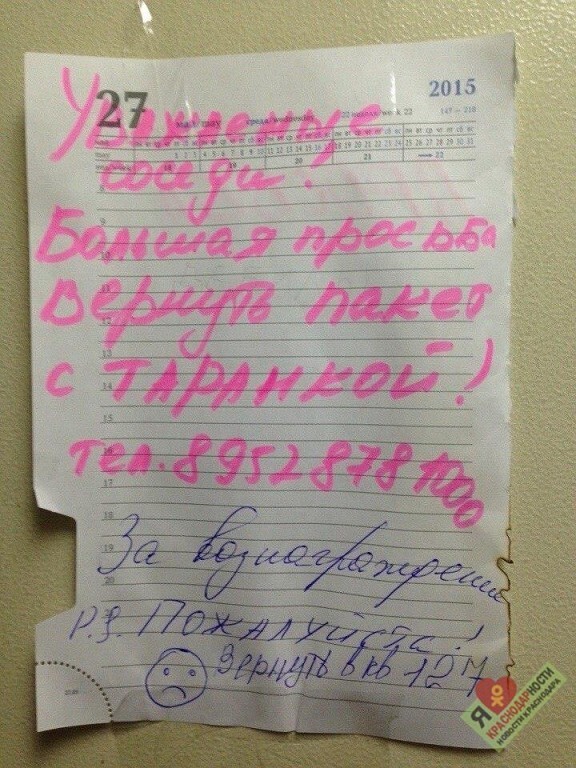 27
2015
среда/wednesday
22 неделя/week 22
147 – 218
Уважаемые
соседи!
Большая просьба
вернуть пакет
с ТАРАНКОЙ!
тел. 8 952 878 1000
За вознаграждение
P.S. Пожалуйста!
вернуть в кв 127
Я
КРАСНОДАРНОСТИ
НОВОСТИ КРАСНОДАРА